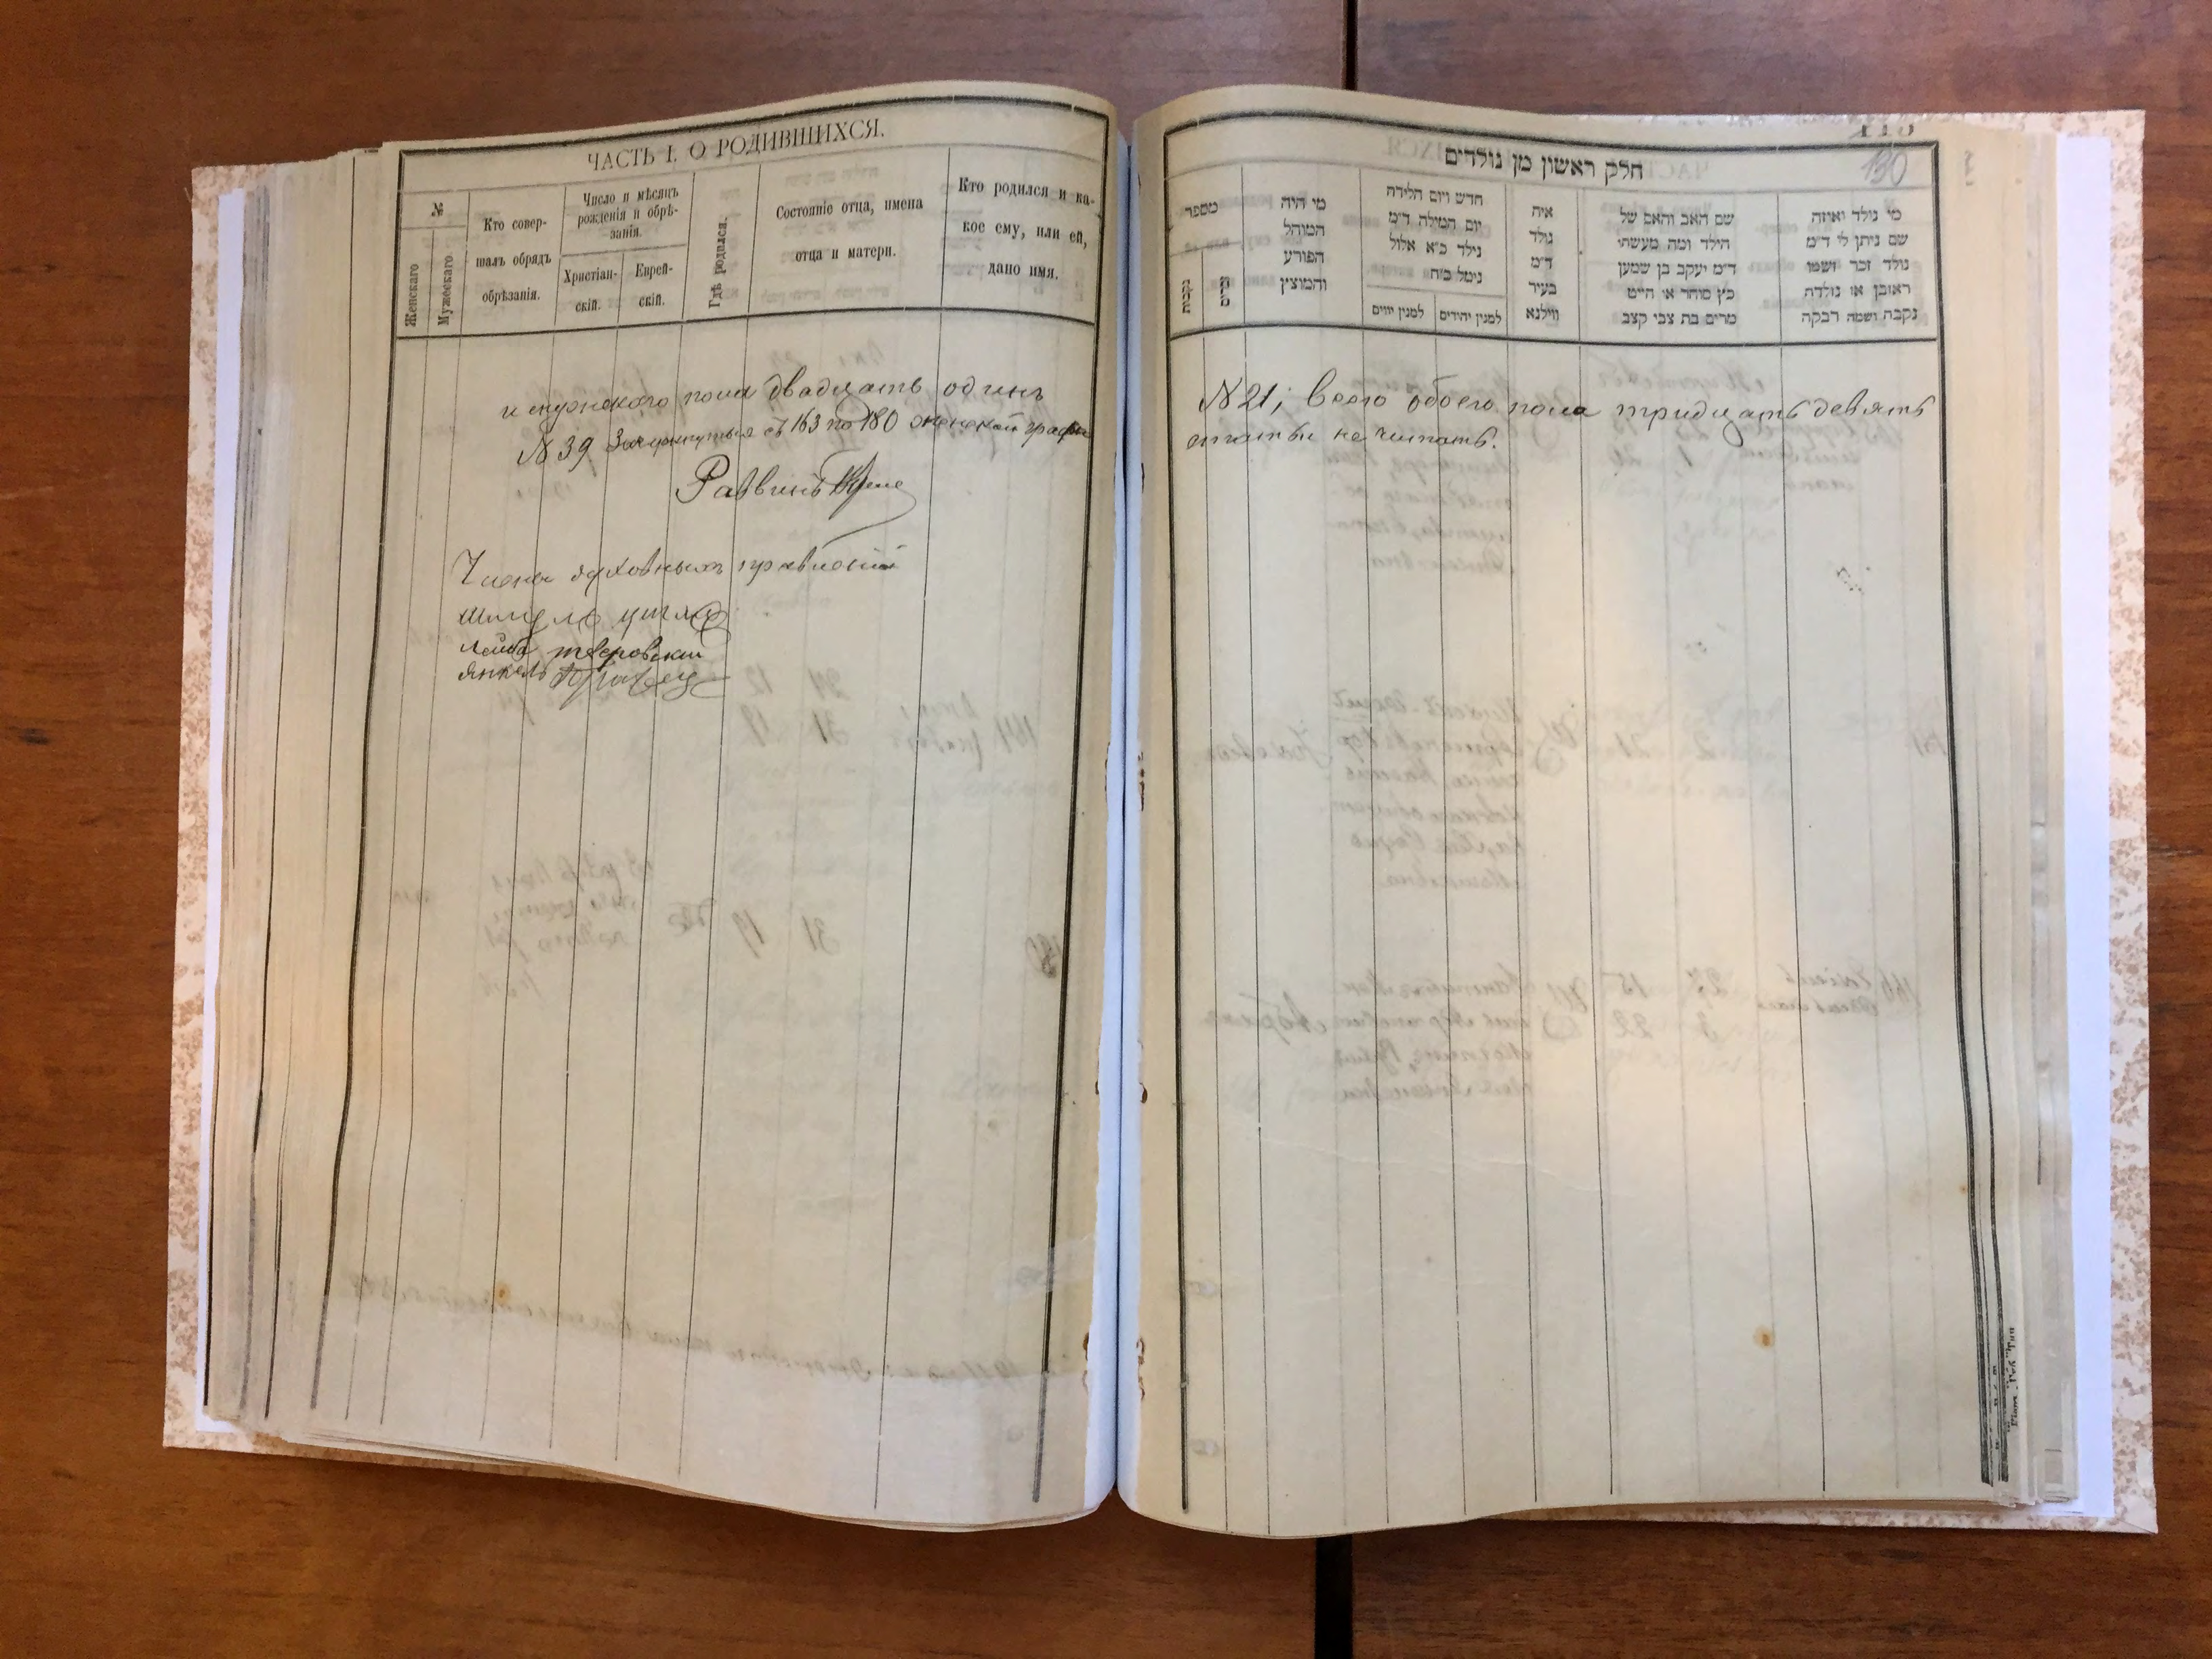 ЧАСТЬ I. О РОДИВШИХСЯ.
№
Женскаго
Мужескаго
Кто совер-
шалъ обрядъ
обрѣзанія.
Число и мѣсяцъ
рожденія и обрѣ-
занія.
Христіан-
скій.
Еврей-
скій.
Гдѣ родился.
Состояніе отца, имена
отца и матери.
Кто родился и ка-
кое ему, или ей,
дано имя.
и мужскаго пола двадцать одинъ
N 39 Зачеркнутыя съ 163 по 180 женской графы
Раввинъ
Члены духовныхъ правленій
Лейба тверовскій
Янкель
130
חלק ראשון מן נולדים
מספר
נקבות
זכרים
מי היה
המוהל
הפורע
והמוצץ
חדש ויום הלידה
יום המילה ד״מ
נילד כ״א אלול
נימל כ״ח
למנין יווים
למנין יהודים
איה
נולד
ד״מ
בעיר
ווילנא
שם האב והאם של
הילד ומה מעשהו
ד״מ יעקב בן שמעון
כץ סוחר או חייט
מרים בת צבי קצב
מי נולד ואיזה
שם ניתן לו ד״מ
נולד זכר ושמו
ראובן או נולדה
נקבה ושמה רבקה
N 21; всего обоего пола тридцать девять
статьи не читать.